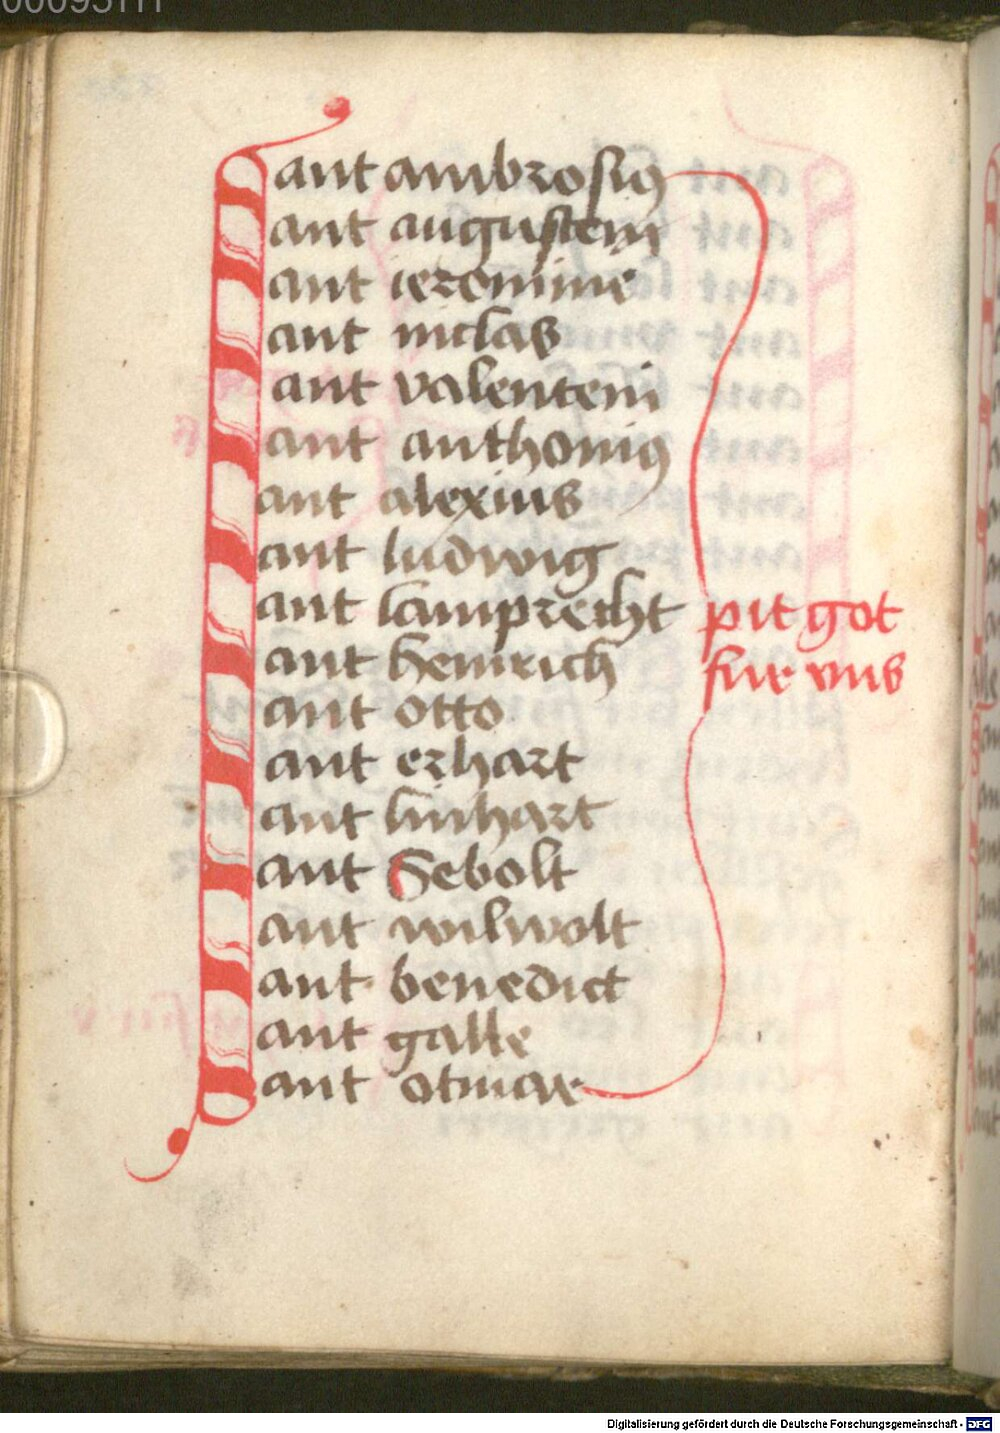 ant ambrosius
ant augustein
ant ieronime
ant niclas
ant valentein
ant anthonius
ant alexius
ant ludwig
ant lamprecht
ant heinrich
ant otto
ant erhart
ant linhart
ant Sebolt
ant wilwolt
ant benedict
ant galle
ant otmar
pit got
fur vns
Digitalisierung gefördert durch die Deutsche Forschungsgemeinschaft - DFG